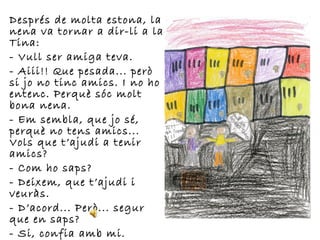 Després de molta estona, la
nena va tornar a dir-li a la
Tina:
- Vull ser amiga teva.
- Aiii!! Que pesada... però
si jo no tinc amics. I no ho
entenc. Perquè sóc molt
bona nena.
- Em sembla, que jo sé,
perquè no tens amics...
Vols que t’ajudi a tenir
amics?
- Com ho saps?
- Deixem, que t’ajudi i
veuràs.
- D’acord... Però... segur
que en saps?
- Si, confia amb mi.